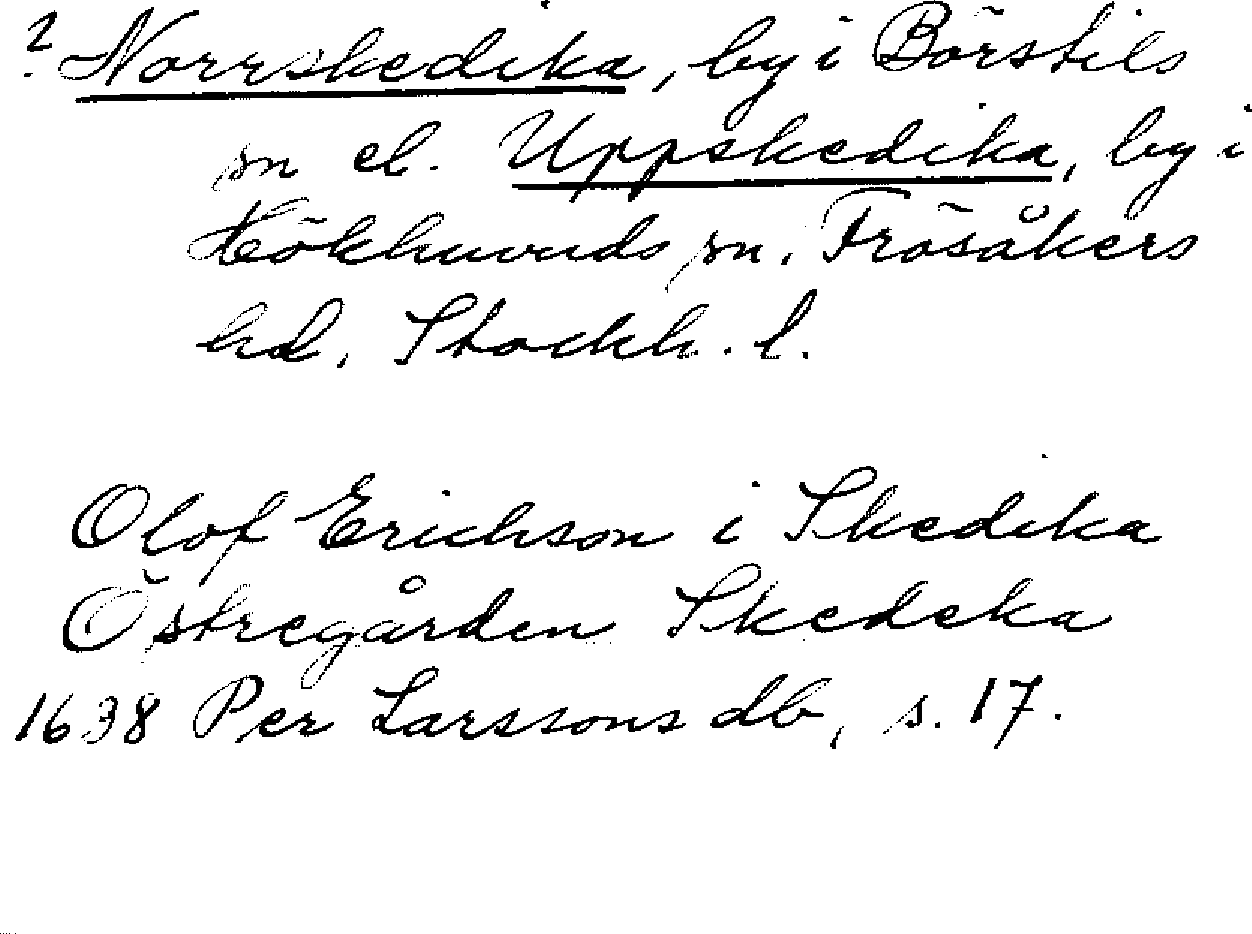 ? Norrskedika, by i Börstils
sn el. Uppskedika, by i
Hökhuvuds sn, Frösåkers
hd, Stockh. l.
Olof Erichson i Skedika
Östregården Skedeka
1638 Per Larssons db, s. 17.